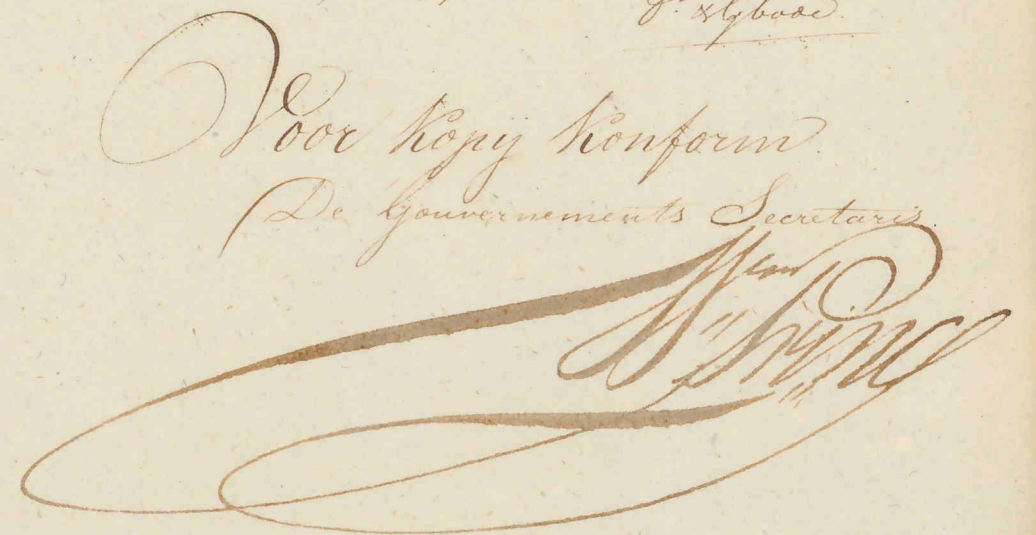 Voor Kopij Konform
De Gouvernements Secretaris
Wm